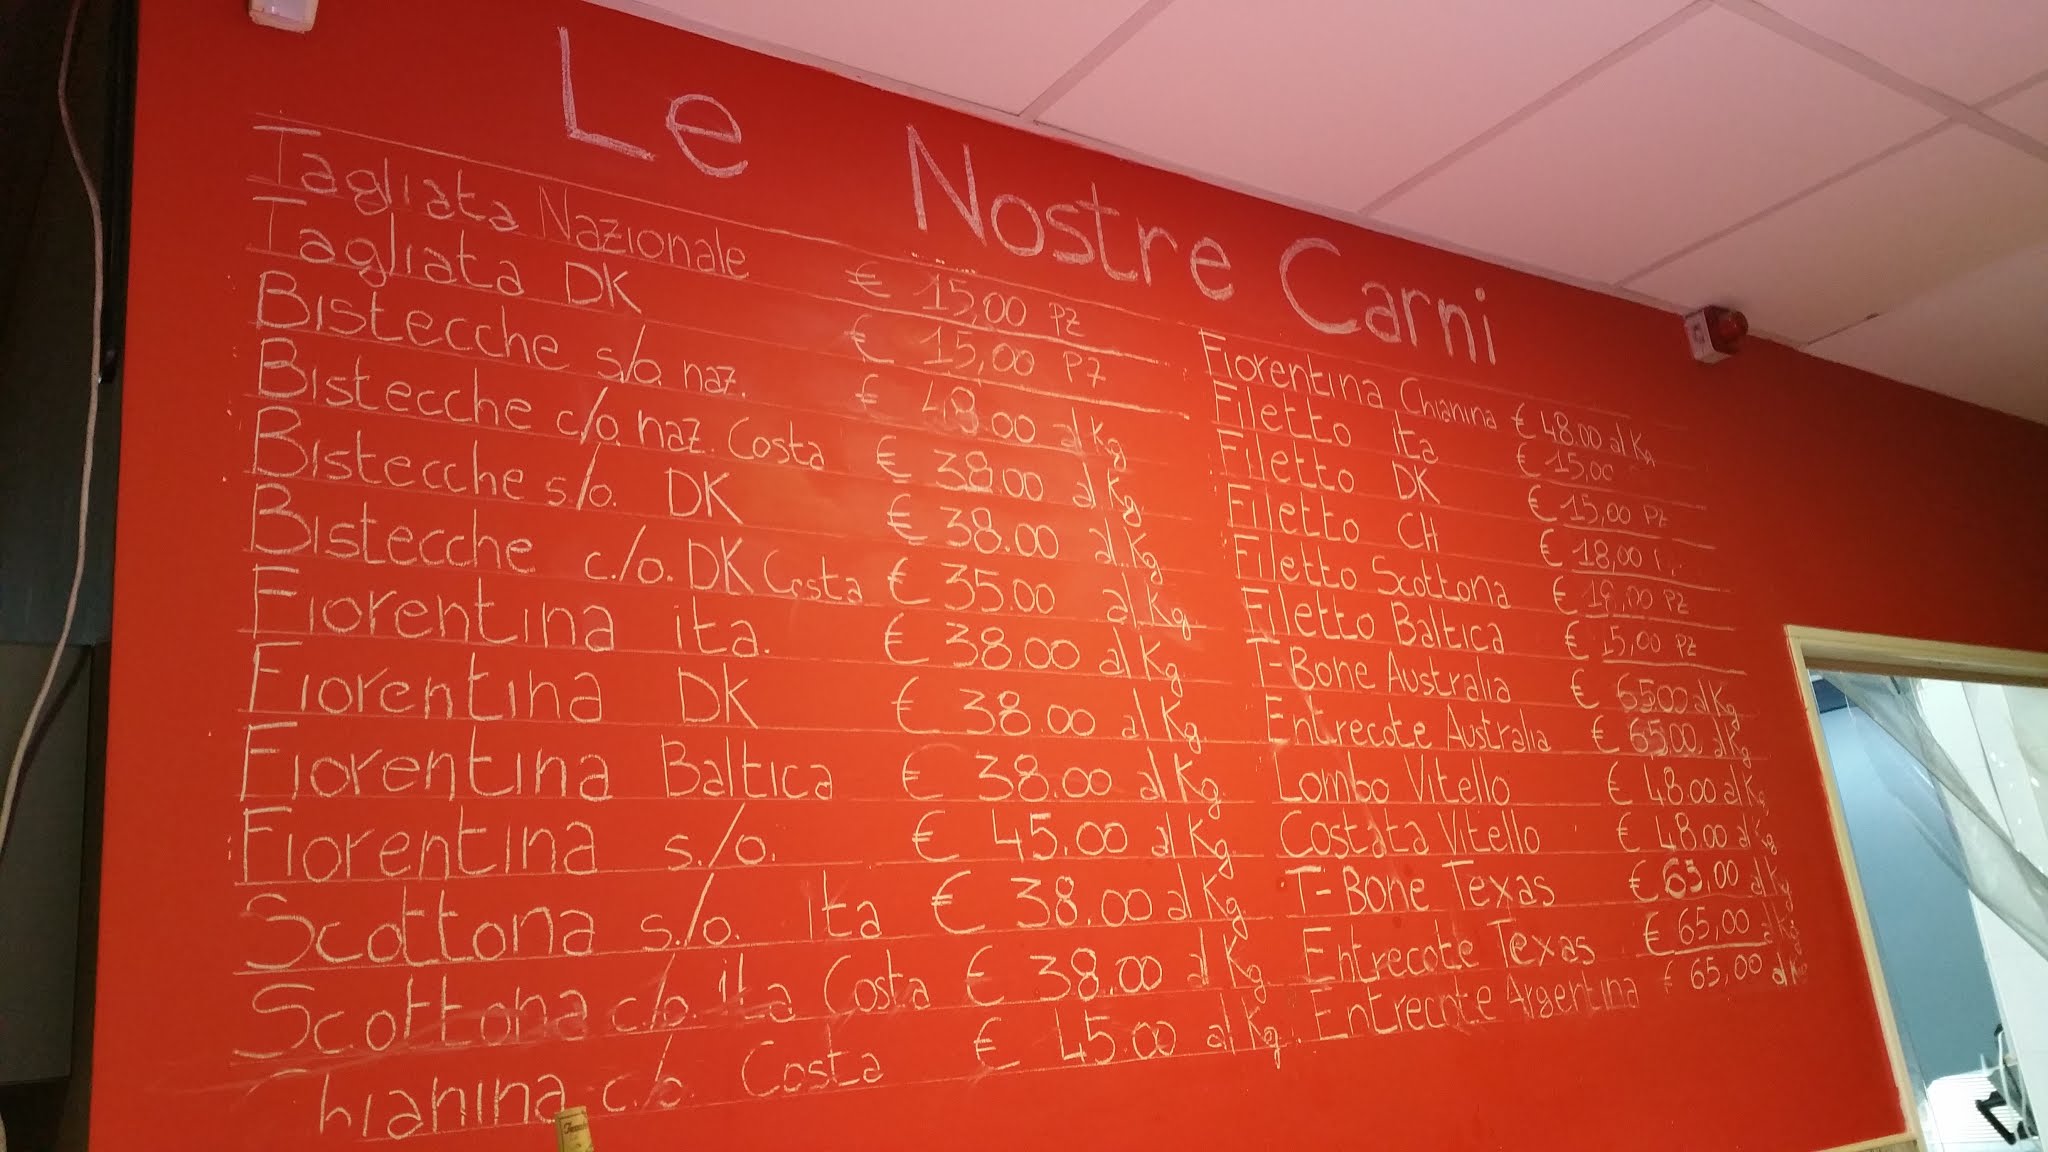 Le Nostre Carni
Tagliata Nazionale € 15,00 PZ
Tagliata DK € 15,00 PZ
Bistecche s/o. naz. € 48.00 al Kg
Bistecche c/o naz. Costa € 38.00 al Kg
Bistecche s/o. DK € 38.00 al Kg
Bistecche c./o. DK Costa € 35.00 al Kg
Fiorentina ita. € 38.00 al Kg
Fiorentina DK € 38.00 al Kg
Fiorentina Baltica € 38.00 al Kg
Fiorentina s./o. € 45.00 al Kg
Scottona s./o. ita € 38.00 al Kg
Scottona c/o. ita Costa € 38.00 al Kg
Chianina c/o. Costa € 45.00 al Kg
Fiorentina Chianina € 48.00 al Kg
Filetto ita € 15,00
Filetto DK € 15,00 PZ
Filetto CH € 18,00
Filetto Scottona € PZ
Filetto Baltica € 15,00 PZ
T-Bone Australia € 65.00 al Kg
Entrecote Australia € 65,00 al Kg
Lombo Vitello € 48.00 al Kg
Costata Vitello € 48.00 al Kg
T-Bone Texas € 65,00 al Kg
Entrecote Texas € 65,00 al Kg
Entrecote Argentina € 65,00 al Kg